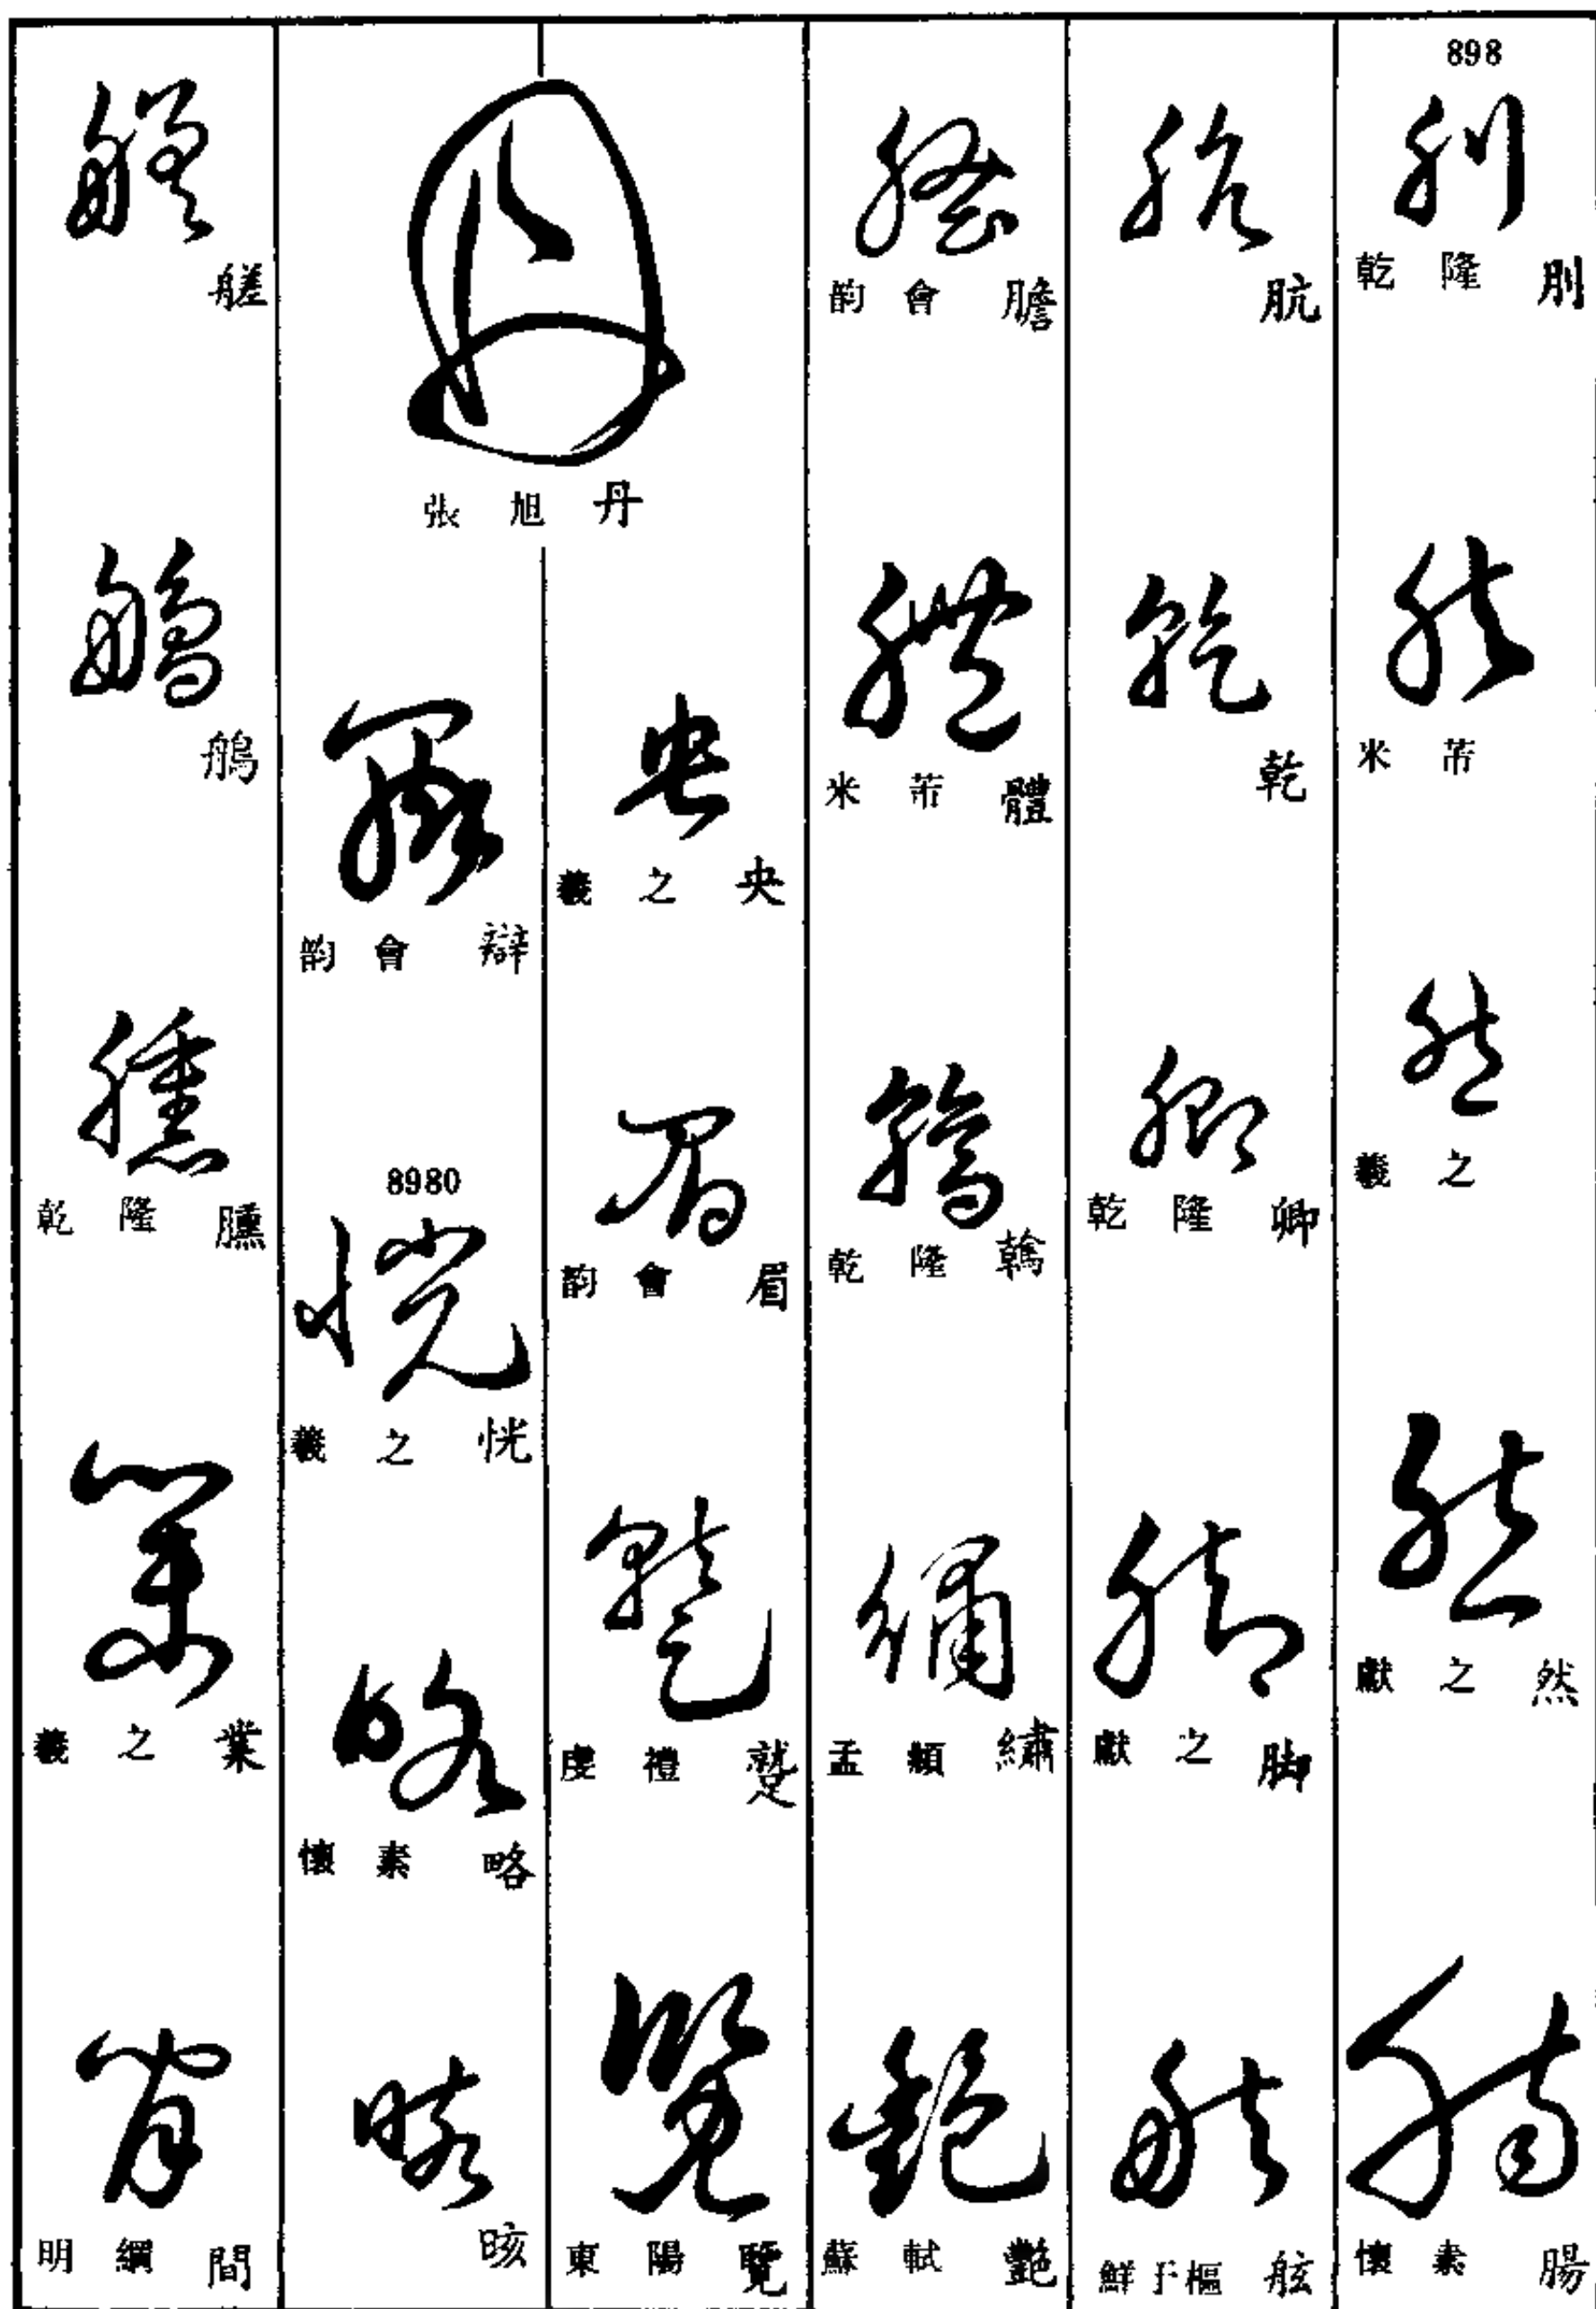 898
乾隆 刖
米芾
羲之
獻之 然
懷素 腸
肮
乾
乾隆 卿
獻之 脚
鮮于樞 舷
韵會 膽
米芾 體
乾隆 鶾
孟頫 繡
蘇軾 艷
張旭 丹
羲之 央
韵會 眉
虔禮 蹔
東陽 覽
韵會 辯
8980
羲之 恍
懷素 略
晐
艖
乾隆 臐
羲之 葉
明綱 間